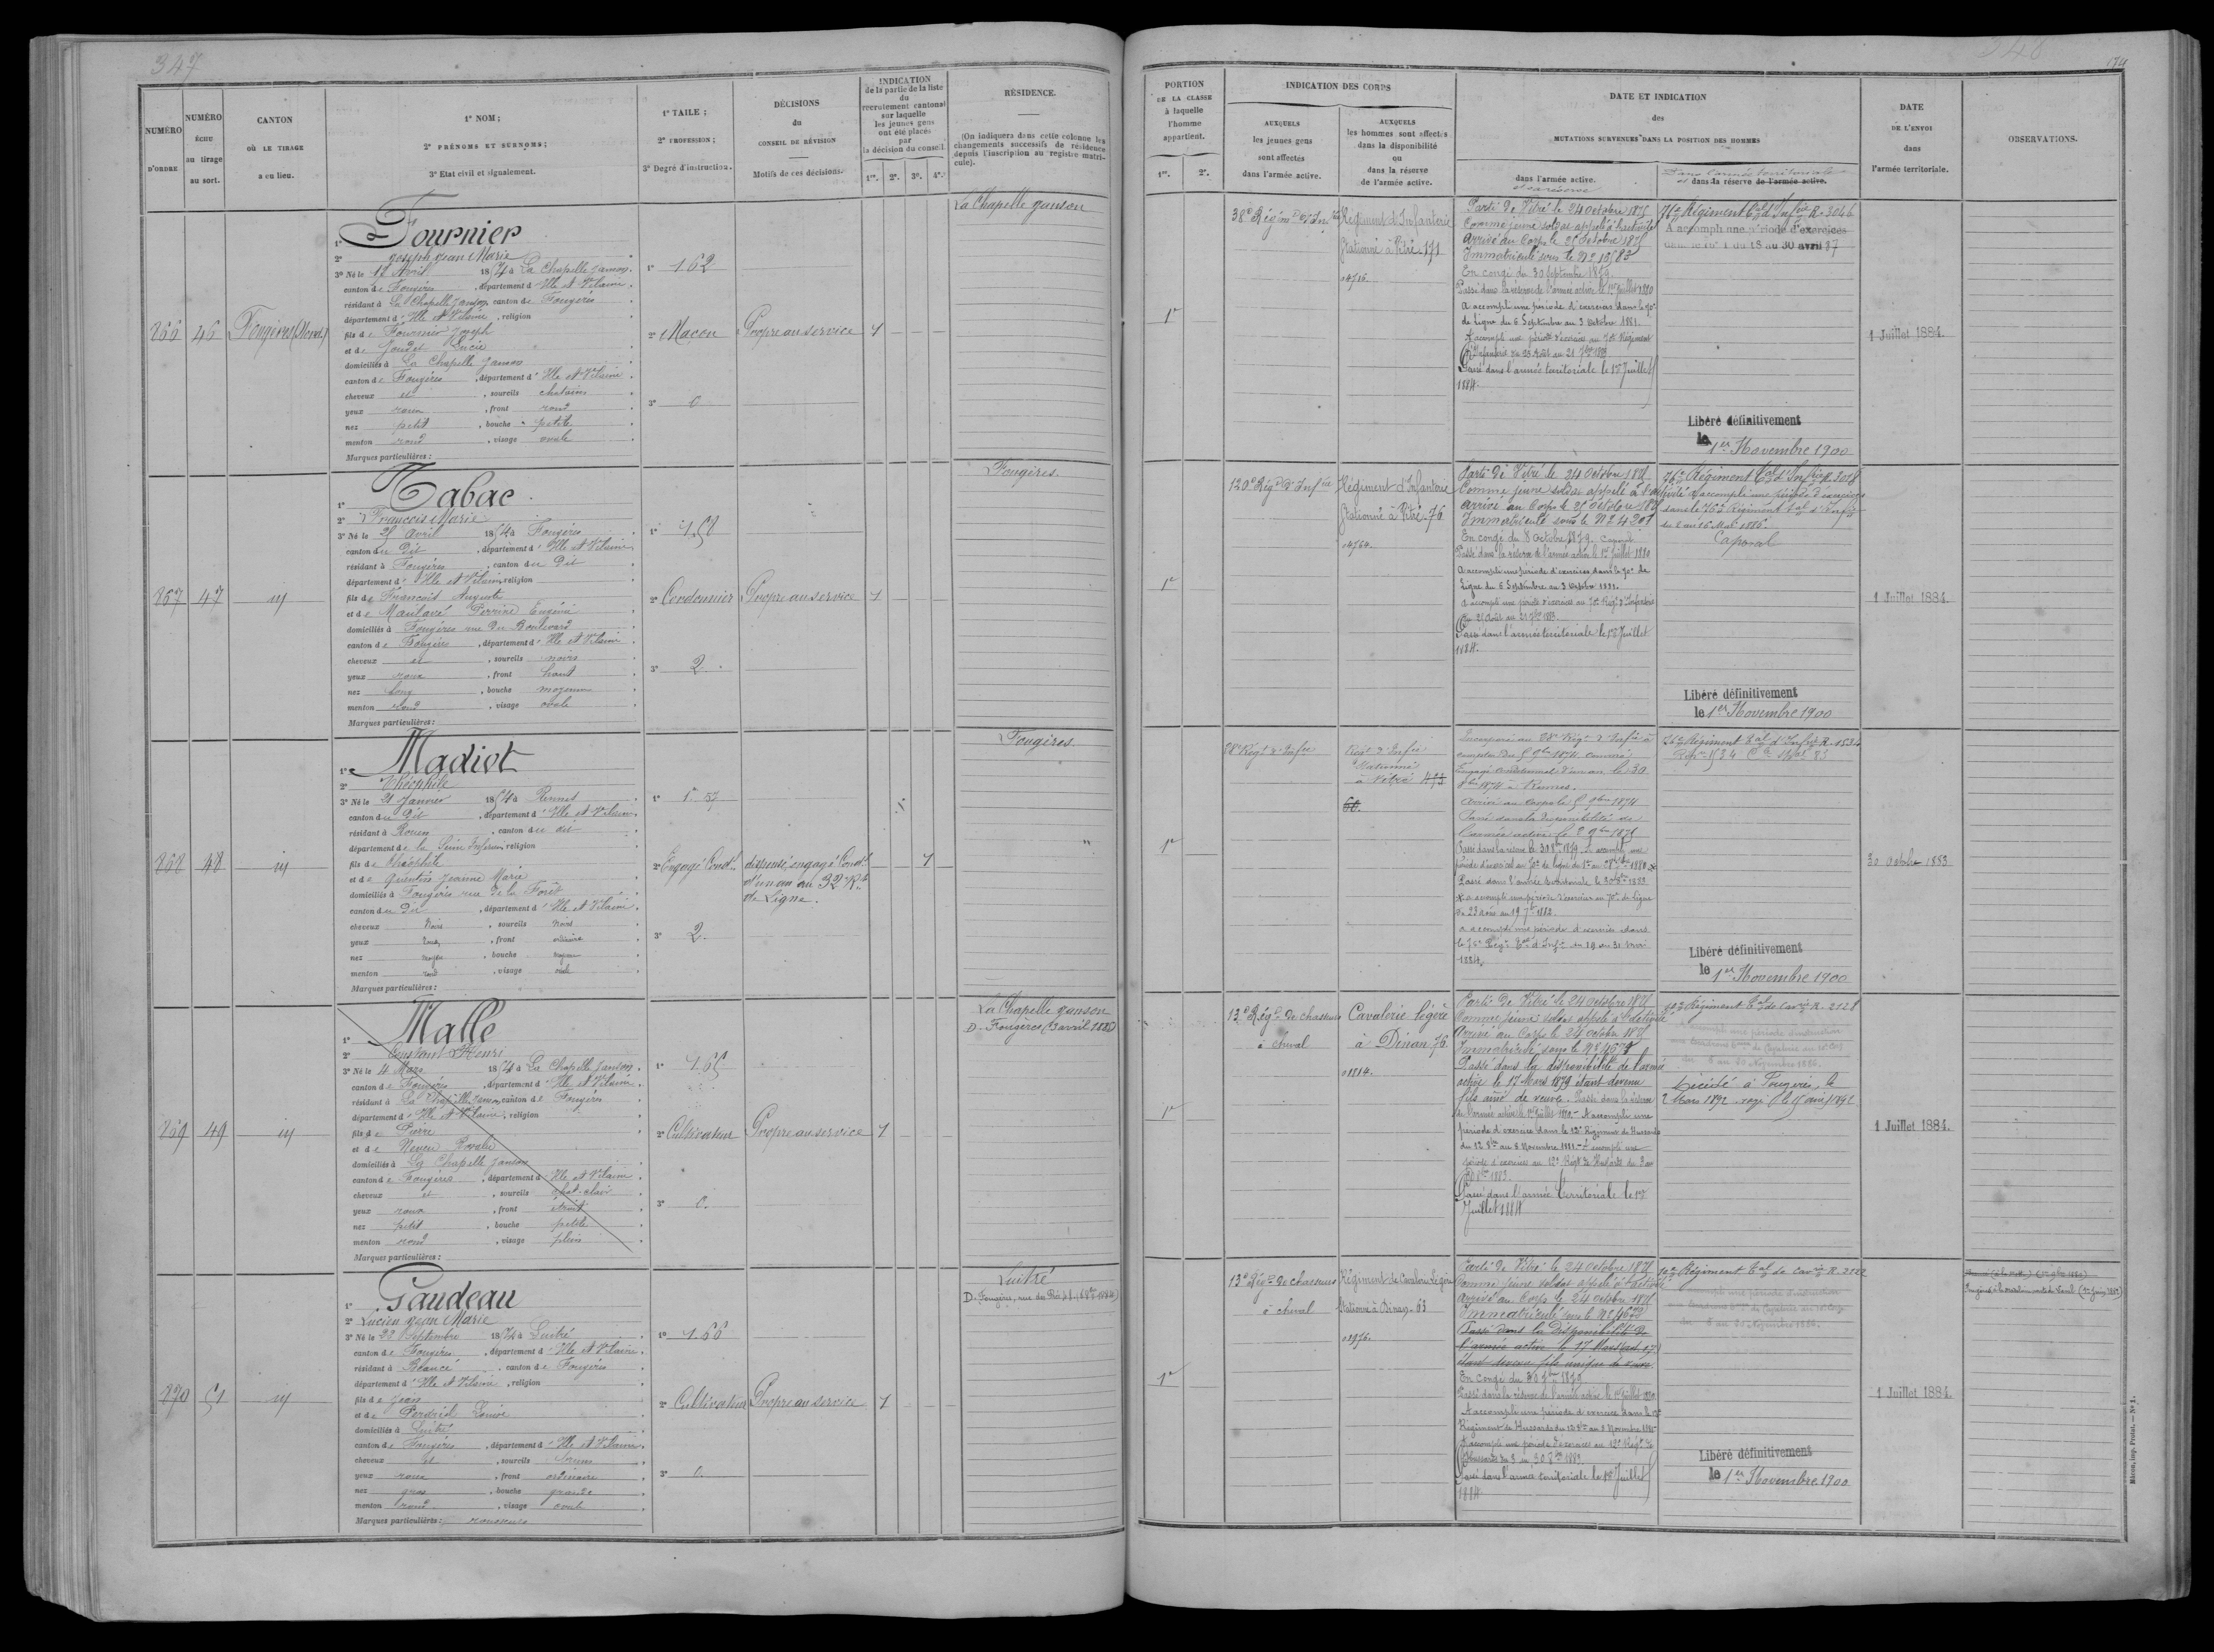 347
NUMÉRO D'ORDRE
NUMÉRO ÉCHU au tirage au sort.
CANTON OÙ LE TIRAGE a eu lieu.
1° NOM ;
2° PRÉNOMS ET SURNOMS ;
3° Etat civil et signalement.
1° TAILE ;
2° PROFESSION ;
3° Degré d'instruction.
DÉCISIONS
du
CONSEIL DE RÉVISION
Motifs de ces décisions.
INDICATION
de la partie de la liste
du
recrutement cantonal
sur laquelle
les jeunes gens
ont été placés
par
la décision du conseil
1re. 2e. 3e. 4e.
RÉSIDENCE.
(On indiquera dans cette colonne les
changements successifs de résidence
depuis l'inscription au registre matri-
cule).
866 46 Fougères (Nord)
La Chapelle Janson
1° Fournier
2° Joseph Jean Marie
3° Né le 12 Avril 1854 à La Chapelle Janson.
canton de Fougères, département d'Ille et Vilaine.
résidant à La Chapelle Janson, canton de Fougères
département d'Ille et Vilaine, religion
fils de Fournier Joseph
et de Lucie
domiciliés à La Chapelle Janson
canton de Fougères, département d'Ille et Vilaine.
cheveux et, sourcils chatains
yeux roux, front rond
nez petit, bouche petite
menton rond, visage ovale
Marques particulières :
1° 1.62
2° Maçon Propre au service 1
3° 0
867 47 id
Fougères.
1° Tabac
2° François Marie
3° Né le 25 Avril 1854 à Fougères
canton du Dit, département d'Ille et Vilaine
résidant à Fougères, canton du Dit
département d'Ille et Vilaine, religion
fils de François Auguste
et de Perrine Eugénie
domiciliés à Fougères rue du Boulevard
canton de Fougères, département d'Ille et Vilaine
cheveux et, sourcils noirs
yeux roux, front haut
nez long, bouche moyenne
menton rond, visage ovale
Marques particulières :
2° Cordonnier Propre au service 1
3° 2.
868 48 id
Fougères
1° Madiot
2° Théophile
3° Né le 21 Janvier 1854 à Rennes
canton du Dit, département d'Ille et Vilaine
résidant à Rouen, canton du dit
département de la Seine Infér., religion
fils de Théophile
et de Quentin Jeanne Marie
domiciliés à Fougères rue de la Forêt
canton du Dit, département d'Ille et Vilaine.
cheveux Noirs, sourcils Noirs
yeux roux, front ordinaire
nez moyen, bouche moyenne
menton rond, visage ovale
Marques particulières :
1° 1.57
2° Engagé Condel dispensé, engagé Condel
d'un an au 32 Rt
de Ligne.
1
3° 2.
869 49 id
La Chapelle Janson
D. Fougères (3 avril 1880)
1° Malle
2° Constant Henri
3° Né le 4 Mars 1854 à La Chapelle Janson
canton de Fougères, département d'Ille et Vilaine
résidant à La Chapelle Janson, canton de Fougères
département d'Ille et Vilaine, religion
fils de Pierre
et de Rosalie
domiciliés à La Chapelle Janson
canton de Fougères, département d'Ille et Vilaine
cheveux et, sourcils chat-clair
yeux roux, front étroit
nez petit, bouche petite
menton rond, visage plein
Marques particulières :
1° 1.65
2° Cultivateur Propre au service 1
3° 0.
870 51 id
Luitré
1° Gaudeau
2° Lucien Jean Marie
3° Né le 22 Septembre 1854 à Luitré
canton de Fougères, département d'Ille et Vilaine
résidant à Beaucé, canton de Fougères
département d'Ille et Vilaine, religion
fils de Jean
et de Louise
domiciliés à Luitré
canton de Fougères, département d'Ille et Vilaine.
cheveux et, sourcils bruns
yeux roux, front ordinaire
nez gros, bouche grande
menton rond, visage ovale
Marques particulières : rousseurs
1° 1.66
2° Cultivateur Propre au service 1
3° 0.
348
174
PORTION
DE LA CLASSE
à laquelle
l'homme
appartient.
1re. 2e.
INDICATION DES CORPS
AUXQUELS
les jeunes gens
sont affectés
dans l'armée active.
AUXQUELS
les hommes sont affectés
dans la disponibilité
ou
dans la réserve
de l'armée active.
DATE ET INDICATION
des
MUTATIONS SURVENUES DANS LA POSITION DES HOMMES
dans l'armée active.
et sa réserve
Dans l'armée territoriale
et dans sa réserve de l'armée active.
DATE
DE L'ENVOI
dans
l'armée territoriale.
OBSERVATIONS.
1re
38e Régimt d'Infie
Régiment d'Infanterie
Stationné à Vitré 171
04716.
Parti de Vitré le 24 octobre 1875
Comme jeune soldat appelé à l'activité
Arrivé au Corps le 25 octobre 1875
Immatriculé sous le N°
En congé du 30 Septembre 1879.
Passé dans la réserve de l'armée active le 1er Juillet 1880
A accompli une période d'exercices dans le 70e
de Ligne du 6 Septembre au 3 Octobre 1881.
A accompli une période d'exercices au 70e Régiment
d'Infanterie du 25 Août au 21 7bre 1883
Passé dans l'armée territoriale le 1er Juillet
1884.
76e Régiment tal d'Infie R. 3046
A accompli une période d'exercices
dans le 76e T du 18 au 30 avril 87
Libéré définitivement
le 1er Novembre 1900
1 Juillet 1884.
1re
120e Régt d'Infie
Régiment d'Infanterie
Stationné à Vitré 76
04764.
Parti de Vitré le 24 Octobre 1875
Comme jeune soldat appelé à l'activité
Arrivé au Corps le 25 Octobre 1875
Immatriculé sous le N° 4201
En congé du 8 Octobre 1879. Caporal
Passé dans la réserve de l'armée active le 1er Juillet 1880
A accompli une période d'exercices dans le 70e de
Ligne du 6 Septembre au 3 Octobre 1881.
A accompli une période d'exercices au 70e Régt d'Infanterie
du 25 Août au 21 7bre 1883.
Passé dans l'armée territoriale le 1er Juillet
1884.
76e Régiment tal d'Infie R. 3058
A accompli une période d'exercices
dans le 76e Régiment tal d'Infie
du 3 au 15 Mai 1886.
Caporal
Libéré définitivement
le 1er Novembre 1900
1 Juillet 1884.
1re
28e Régt d'Infie
Régt d'Infie
Stationné
à Vitré 473
60.
Incorporé au 28e Régt d'Infie à
compter du 5 9bre 1874 comme
Engagé conditionnel d'un an le 30
8bre 1874 à Rennes.
Arrivé au corps le 5 9bre 1874
Passé dans la disponibilité de
l'armée active le 8 9bre 1875
Passé dans l'armée territoriale le 30 8bre 1883
x a accompli une période d'exercices au 70e de ligne
du 23 août au 19 7bre 1882.
a accompli une période d'exercices dans
le 76e Régt tal d'Infie du 19 au 31 mai
1884.
Libéré définitivement
le 1er Novembre 1900
30 octobre 1883
1re
13e Régt de chasseurs
à cheval
Cavalerie légère
à Dinan 76
01814.
Parti de Vitré le 24 octobre 1875
Comme jeune soldat appelé à l'activité
Arrivé au Corps le 24 octobre 1875
Immatriculé sous le N° 4673
Passé dans la disponibilité de l'armée
active le 17 Mars 1879 étant devenu
fils aîné de veuve. Passé dans la réserve
de l'armée active le 1er Juillet 1880. A accompli une
période d'exercice dans le 12e Régiment de Hussards
du 12 8bre au 8 Novembre 1881. A accompli une
période d'exercices au 12e Régt de Hussards du 3 au
30 8bre 1883.
Passé dans l'armée territoriale le 1er
Juillet 1884
10e Régiment tal de Cavie R. 2128
Décédé à Fougères, le
2 Mars 1892
1 Juillet 1884.
1re
13e Régt de chasseurs
à cheval
Régiment de Cavalerie légère
Stationné à Dinan 63
01976.
Parti de Vitré le 24 Octobre 1875
Comme jeune soldat appelé à l'activité
Arrivé au Corps le 24 octobre 1875
Immatriculé sous le N° 4672
Passé dans la Disponibilité de
l'armée active le 17 Mars
étant devenu fils unique de veuve
En congé du 30 7bre 1879.
Passé dans la réserve de l'armée active le 1er Juillet 1880
A accompli une période d'exercice dans le 12e
Régiment de Hussards du 12 8bre au 8 Novembre 1881
A accompli une période d'exercices au 12e Régt de
Hussards du 3 au 30 8bre 1883.
Passé dans l'armée territoriale le 1er Juillet
1884
10e Régiment tal de Cavie R. 2122
Libéré définitivement
le 1er Novembre 1900
1 Juillet 1884.
Mâcon, imp. Protat. — N° 1.